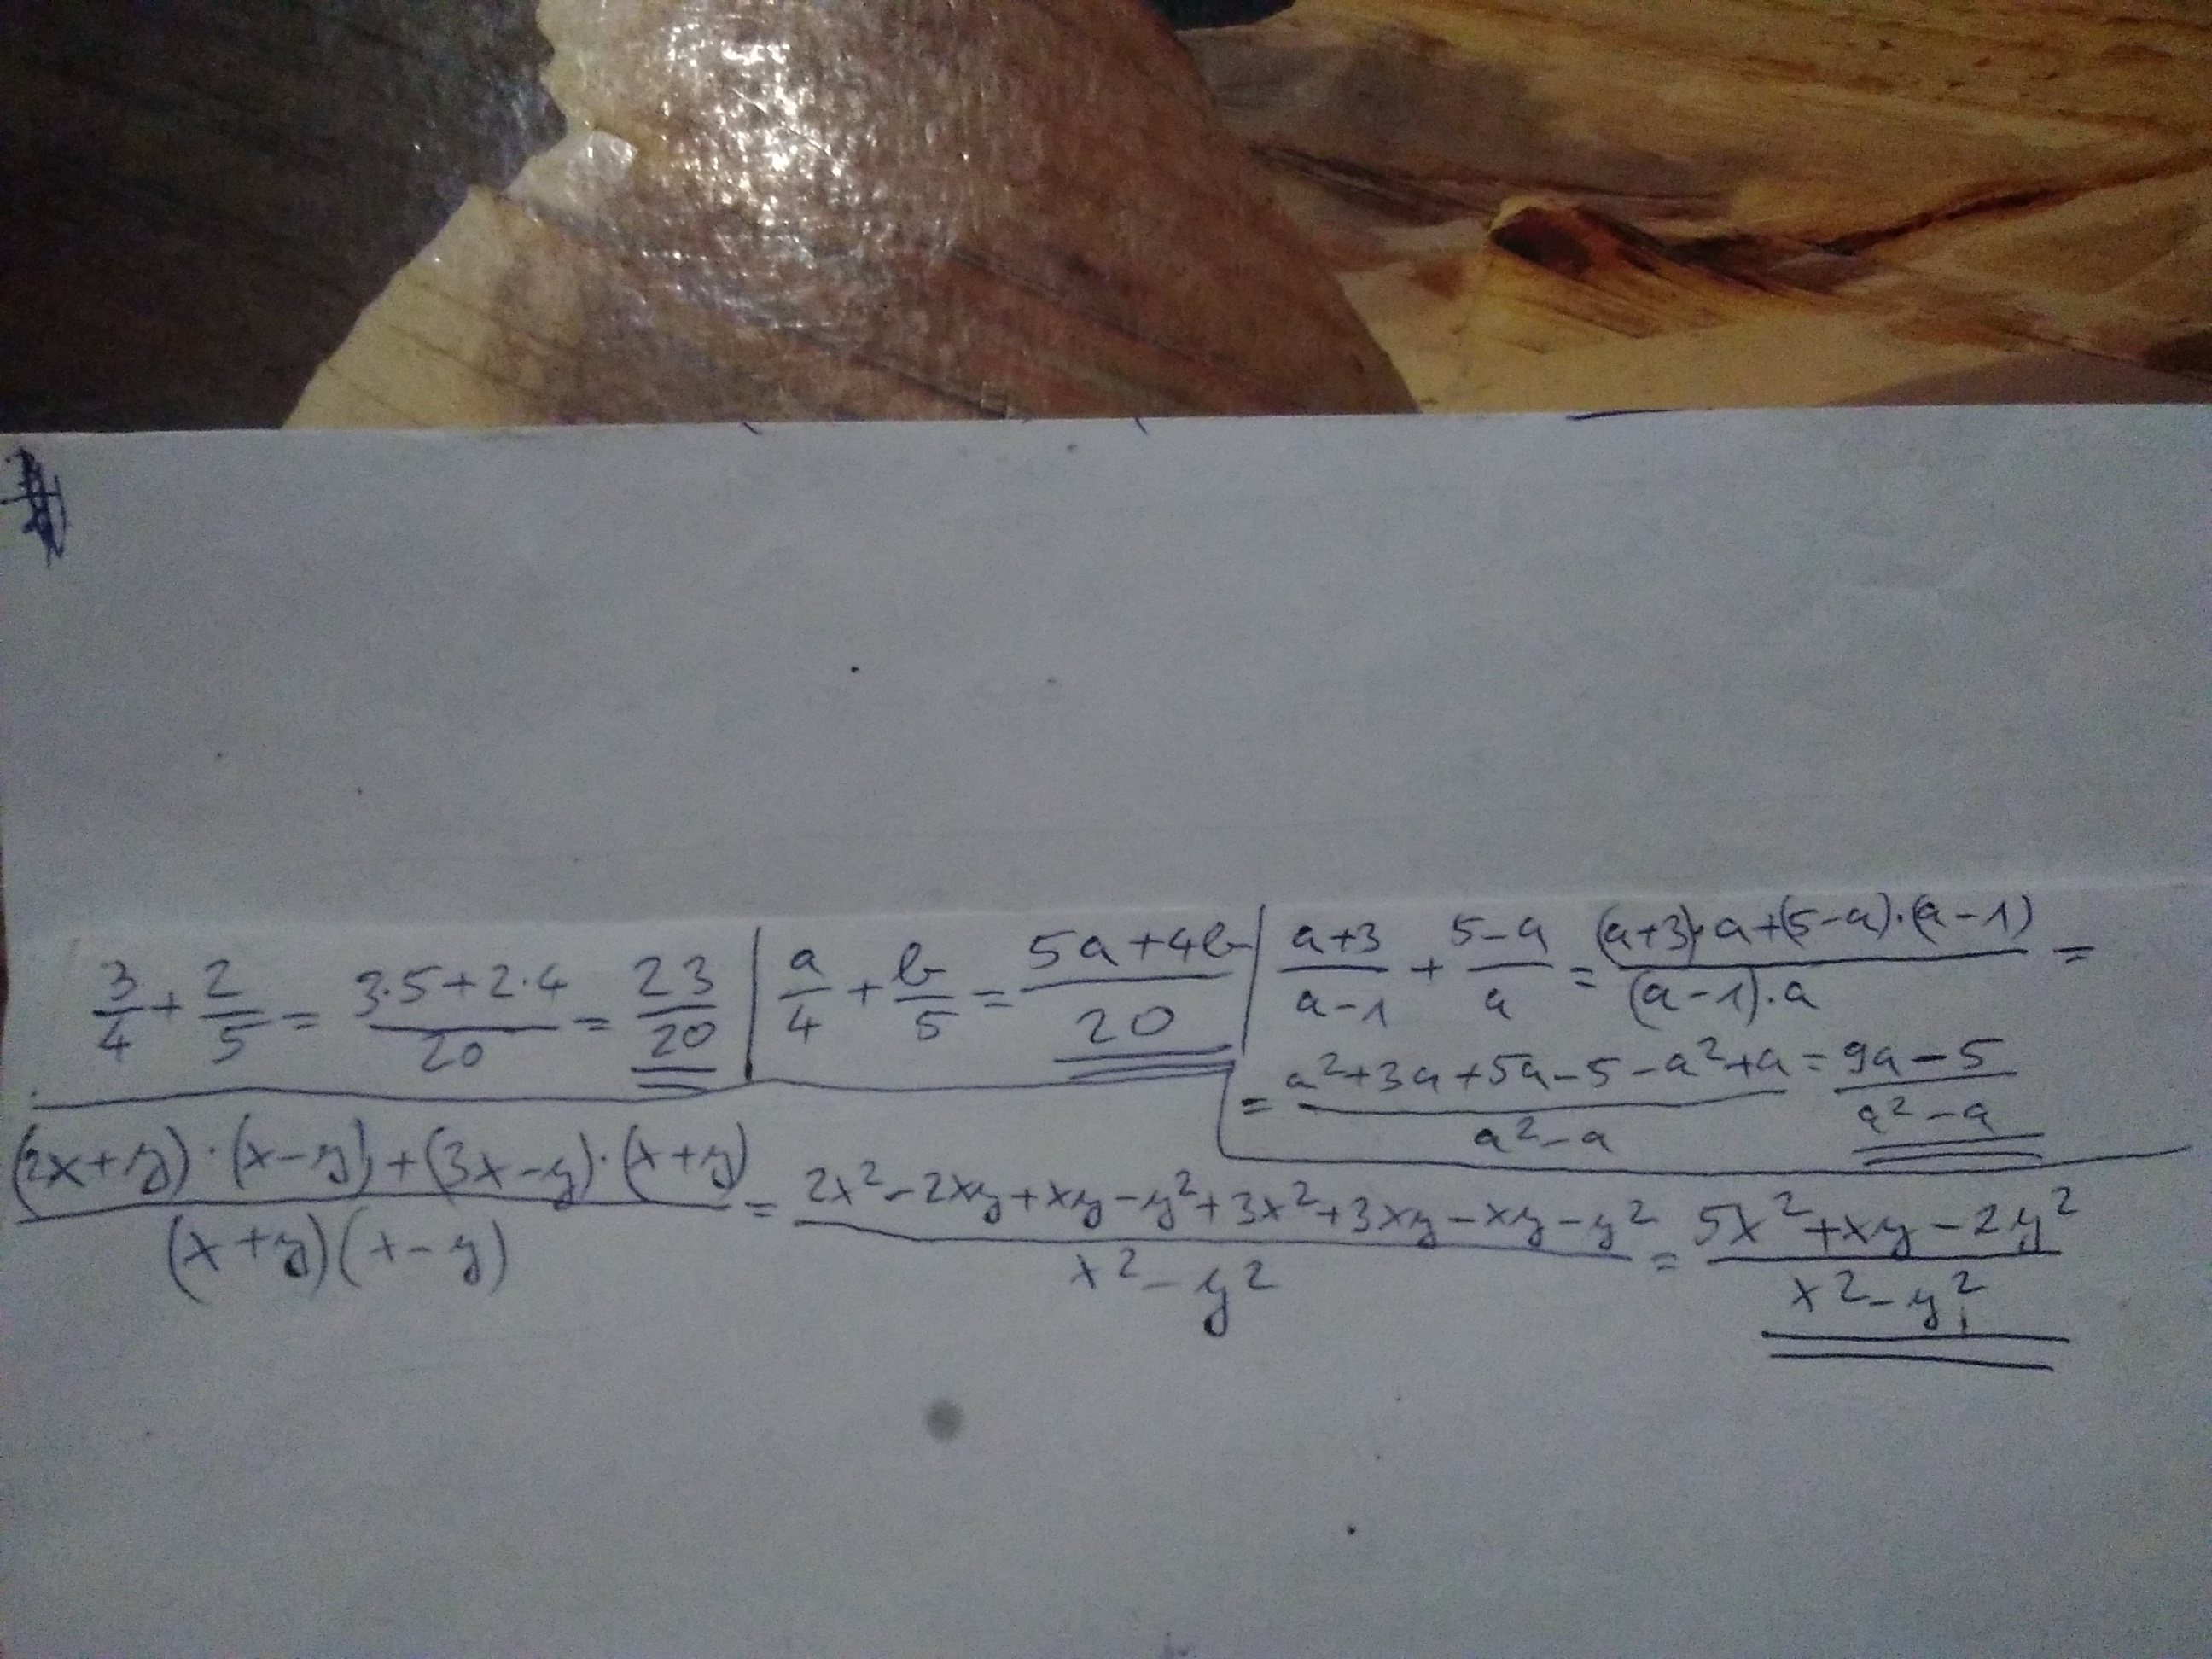 3/4 + 2/5 = (3·5+2·4)/20 = 23/20
a/4 + b/5 = (5a+4b)/20
(a+3)/(a-1) + (5-a)/a = ((a+3)·a+(5-a)·(a-1))/((a-1)·a) =
= (a²+3a+5a-5-a²+a)/(a²-a) = (9a-5)/(a²-a)
((2x+y)·(x-y)+(3x-y)·(x+y))/((x+y)(x-y)) = (2x²-2xy+xy-y²+3x²+3xy-xy-y²)/(x²-y²) = (5x²+xy-2y²)/(x²-y²)